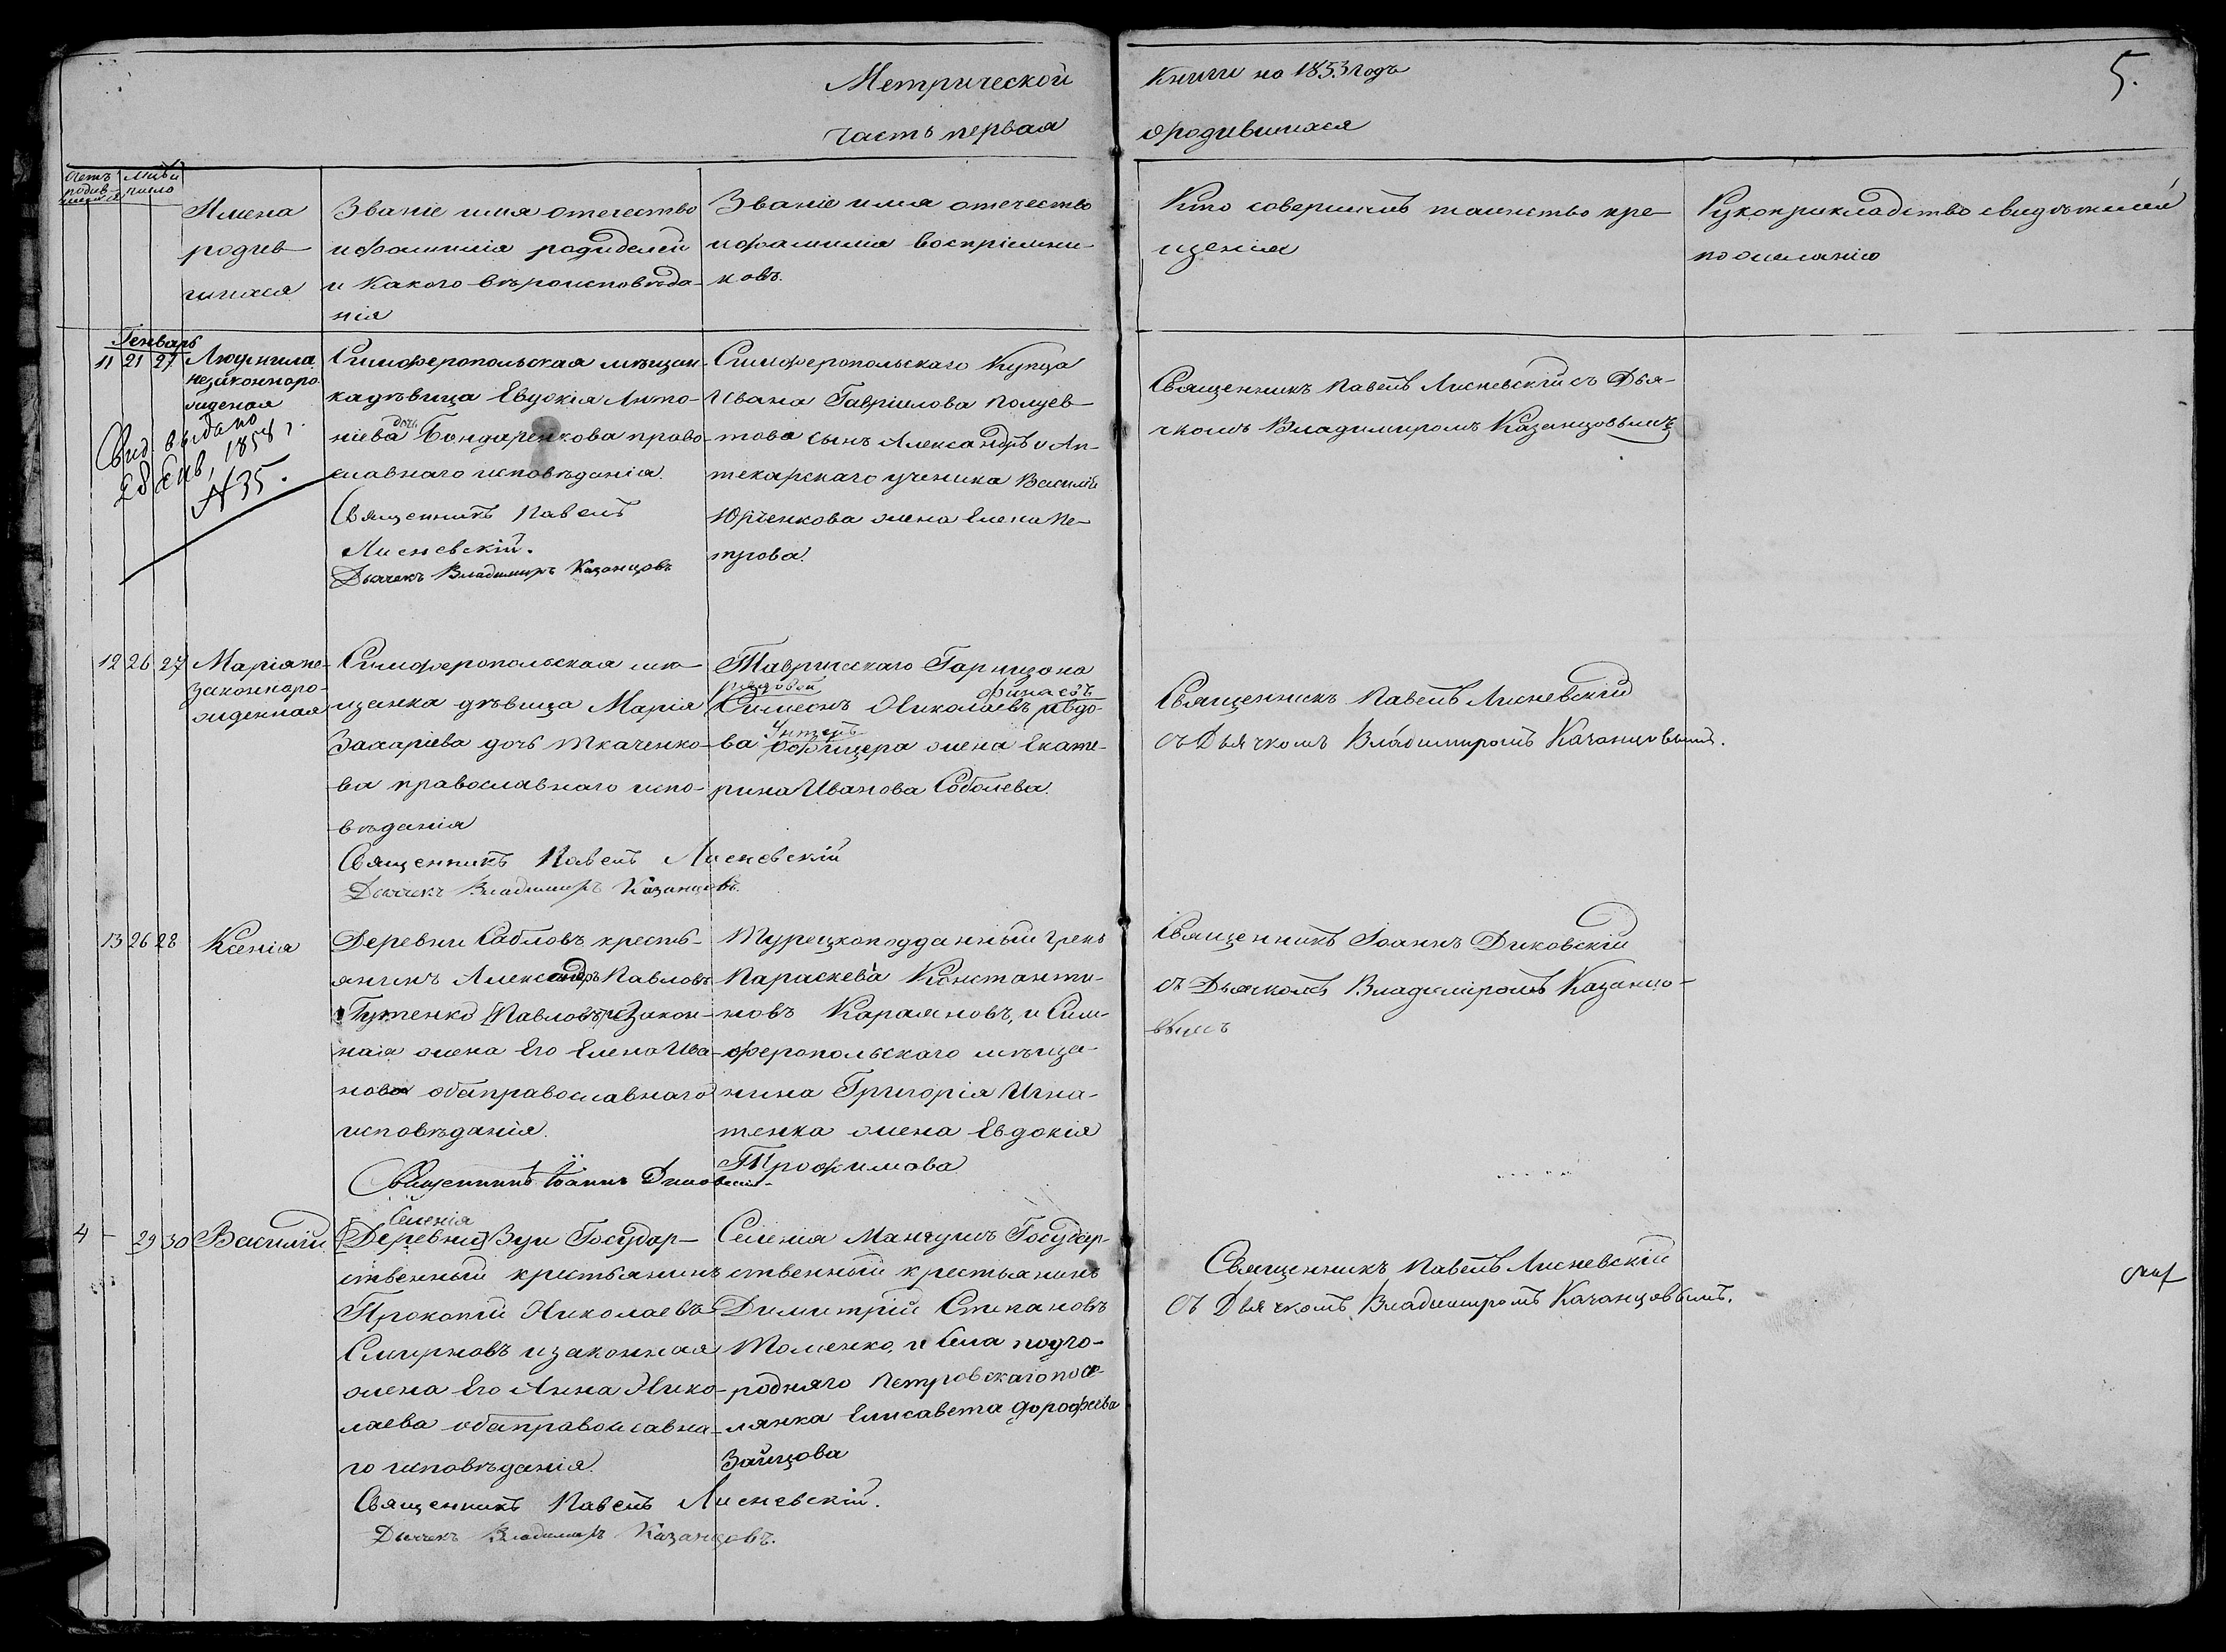 Метрической
часть первая
Книги на 1853 годъ
о родившихся
5.
Счетъ родив-
шихся
Мцъ и
число
Имена
родив-
шихся
Званіе имя отечество
и фамилія родителей
и Какого вѣроисповѣда-
нія
Званіе имя отечество
и фамилія воспріемни-
ковъ.
Кто совершилъ таинство кре-
щенія
Рукоприкладство свидѣтелей
по желанію
Генварь
11 21 27
Людмила
незаконноро
жденая
Свид. выдано
28 Янв, 1858 г.
№ 35.
Симферопольская мѣщан-
ка дѣвица Евдокія Анто-
ніева дочь Бондаренкова право-
славнаго исповѣданія.
Священникъ Павелъ
Лисневскій.
Дьячекъ Владимиръ Казанцовъ
Симферопольскаго Купца
Ивана Гавріилова Полуев-
това сынъ Александръ и Ап-
текарскаго ученика Василія
Юрченкова жена Елена Пе-
трова.
Священникъ Павелъ Лисневскій съ Дья-
чкомъ Владимиромъ Казанцовымъ
12 26 27
Марія не-
законноро-
жденная
Симферопольская мѣ-
щанка дѣвица Марія
Захаріева дочь Ткаченко-
ва православнаго испо-
вѣданія
Священникъ Павелъ Лисневскій
Дьячекъ Владимиръ Казанцовъ.
Таврическаго Гарнизона
рядовой
Симеонъ Николаевъ
ва Унтеръ Офицера жена Екате-
рина Иванова Соболева.
Священникъ Павелъ Лисневскій
съ Дьячкомъ Владимиромъ Казанцовымъ.
13 26 28
Ксенія
Деревни Сабловъ кресть-
янинъ Александръ Павловъ
Гутенко [Павловъ] и Закон-
ная жена Его Елена Ива-
нова оба православнаго
исповѣданія.
Священникъ Іоаннъ Диковскій
Турецкоподданный Грекъ
Параскева Константи-
новъ Караяновъ, и Сим-
феропольскаго мѣща-
нина Григорія Игна-
тенка жена Евдокія
Трофимова
Священникъ Іоаннъ Диковскій
съ Дьячкомъ Владиміромъ Казанцо-
вымъ
4 - 29 30
Василій
Селенія
[Деревни] Зуи Государ-
ственный крестьянинъ
Прокопій Николаевъ
Смирновъ и законная
жена Его Анна Нико-
лаева оба православна-
го исповѣданія.
Священникъ Павелъ Лисневскій.
Дьячекъ Владимиръ Казанцовъ.
Селенія Мангушъ Государ-
ственный крестьянинъ
Димитрій Стипановъ
Томенко, и Села подго-
родняго Петровскаго посе-
лянка Елисавета Дорофеева
Зайцова
Священникъ Павелъ Лисневскій
съ Дьячкомъ Владимиромъ Казанцовымъ.